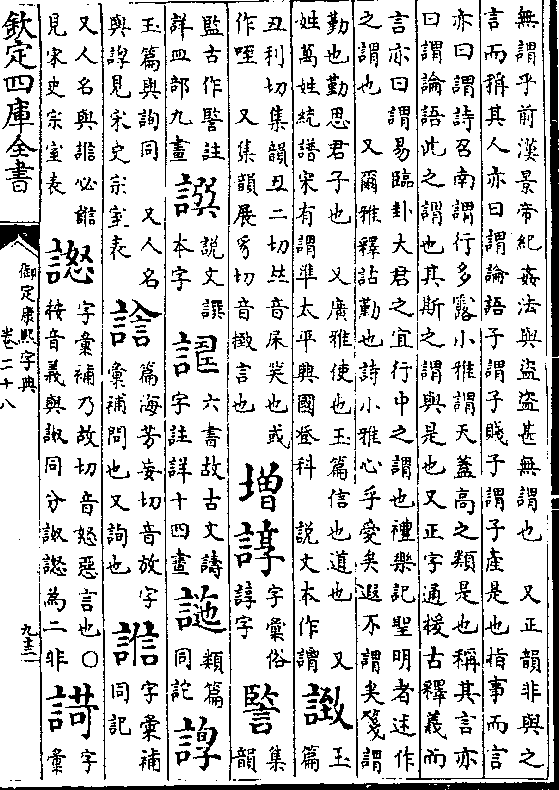 無謂乎前漢景帝紀姦法與盜盜甚無謂也　又正韻非與之
言而稱其人亦曰謂論語子謂子賤子謂子產是也指事而言
亦曰謂詩召南謂行多露小雅謂天蓋高之類是也稱其言亦
曰謂論語此之謂也其斯之謂與是也又正字通按古釋義而
言亦曰謂易臨卦大君之宜行中之謂也禮樂記聖明者述作
之謂也　又爾雅釋詁勤也詩小雅心乎愛矣遐不謂矣箋謂
勤也勤思君子也　又廣雅使也玉篇信也道也　又
姓萬姓統譜宋有謂準太平興國登科　說文本作謂
諴
玉
篇
丑利切集韻丑二切𠀤音屎笑也或
作咥　又集韻展豸切音徵言也
增
諄
字彙俗
諄字
謽
集
韻
監古作謽註
詳皿部九畫
譔
說文譔
本字
六書故古文譸
字註詳十四畫
諡
類篇
同詑
諄
玉篇與詢同　又人名
與諄見宋史宗室表
篇海芳妄切音放字
彙補問也又詢也
字彙補
同記
又人名與諮必諮
見宋史宗室表
𧫚
字彙補乃故切音怒惡言也○
按音義與詉同分詉𧫚為二非
謌
字
彙
欽定四庫全書
御定康熙字典
卷二十八